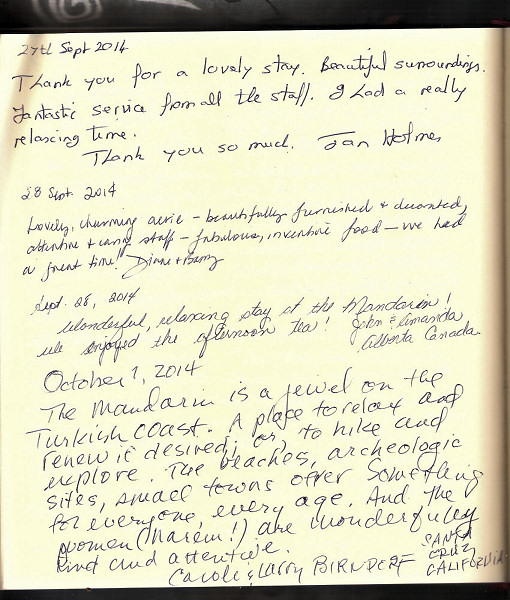 27th Sept 2014
Thank you for a lovely stay. Beautiful surroundings.
Fantastic service from all the staff. I had a really
relaxing time.
Thank you so much. Jan Holmes
28 Sept. 2014
Lovely, charming aerie – beautifully furnished & decorated,
attentive & caring staff – fabulous, inventive food – we had
a great time! Diane & Barry
Sept. 28, 2014
Wonderful, relaxing stay at the Mandarin!
We enjoyed the afternoon tea! John & Amanda
Alberta Canada
October 1, 2014
The Mandarin is a jewel on the
Turkish Coast. A place to relax and
renew if desired; or, to hike and
explore. The beaches, archeologic
sites, small towns offer something
for everyone, every age. And the
women (harem!) are wonderfully
kind and attentive.
Carole & Larry BIRNDORF
SANTA
CRUZ
CALIFORNIA